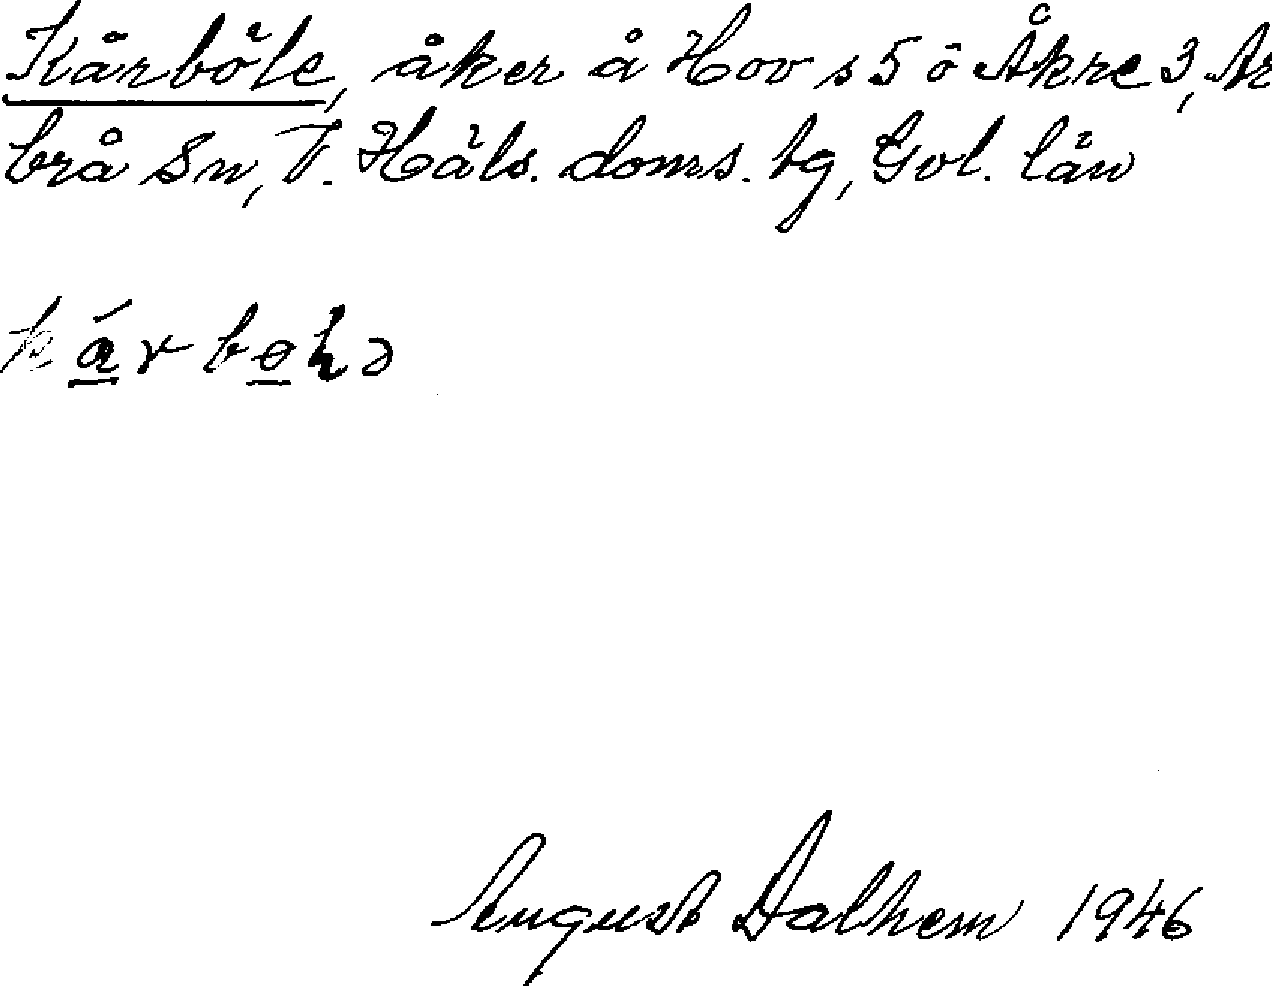 Kårböle, åker å Hov s 5 ö Åkre 3, Ar
brå Sn, V. Häls. doms. tg, Gvl. län
August Dalhem 1946